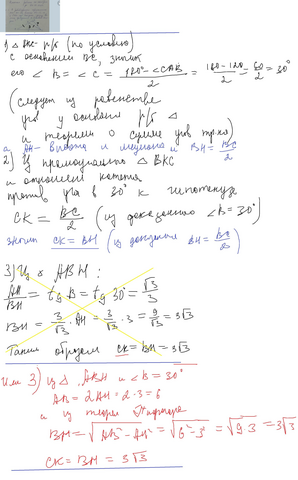 1) △ ВКС - р/б (по условию)
с основанием ВС, значит
его ∠ B = ∠ C = (180° - ∠CAB)/2 = (180 - 120)/2 = 60/2 = 30°
(следует из равенства
углов у основания р/б △
и теоремы о сумме углов тр-ка)
а AH - высота и медиана и BH = BC/2
2) Из прямоугольного △ BKC
и отношения катета
против угла в 30° к гипотенузе
CK = BC/2 (из доказанного ∠B = 30°)
значит CK = BH (из доказано BH = BC/2)
3) Из △ ABH :
AH/BH = tg B = tg 30° = √3/3
BH = 3/√3 · AH = 3/√3 · 3 = 9/√3 = 3√3
Таким образом CK = BH = 3√3
Или 3) из △ ABH и ∠B = 30°
AB = 2AH = 2·3 = 6
а из теоремы Пифагора
BH = √(AB² - AH²) = √(6² - 3²) = √(9·3) = 3√3
CK = BH = 3√3